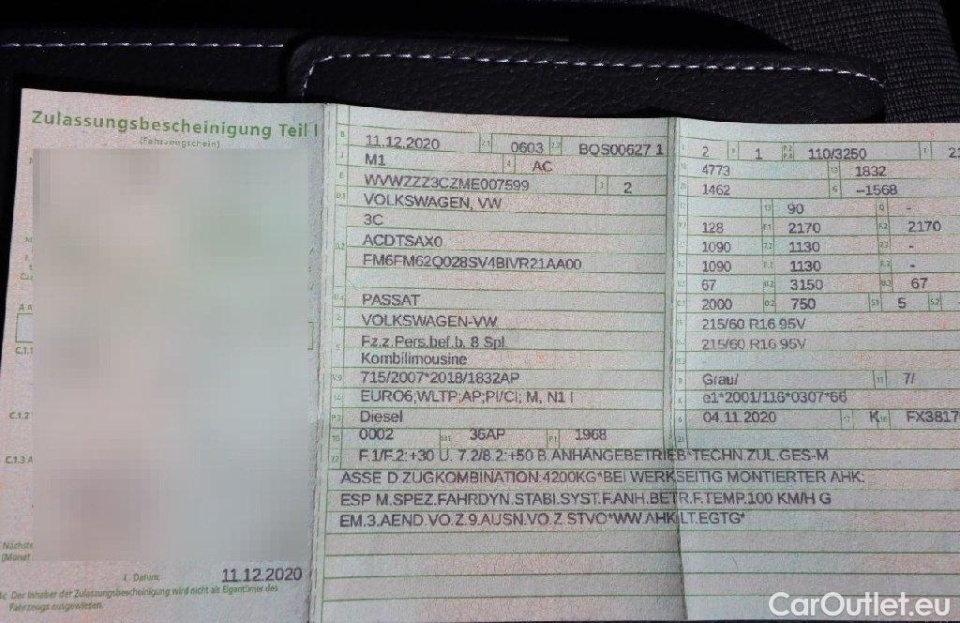 Zulassungsbescheinigung Teil I
(Fahrzeugschein)
Nächste
(Monat
I. Datum: 11.12.2020
4c. Der Inhaber der Zulassungsbescheinigung wird nicht als Eigentümer des
Fahrzeugs ausgewiesen.
C.1.1
C.1.2
C.1.3
B 11.12.2020 2.1 0603 2.2 BQS00627 1
J M1 4 AC
E WVWZZZ3CZME007599 3 2
D.1 VOLKSWAGEN, VW
3C
D.2 ACDTSAX0
FM6FM62Q028SV4BIVR21AA00
PASSAT
2 VOLKSWAGEN-VW
5 Fz.z.Pers.bef.b. 8 Spl.
Kombilimousine
V.9 715/2007*2018/1832AP
14 EURO6;WLTP;AP;PI/CI; M, N1 I
P.3 Diesel
10 0002 14.1 36AP P.1 1968
22 F.1/F.2:+30 U. 7.2/8.2:+50 B.ANHÄNGEBETRIEB*TECHN.ZUL.GES-M
ASSE D.ZUGKOMBINATION:4200KG*BEI WERKSEITIG MONTIERTER AHK:
ESP M.SPEZ.FAHRDYN.STABI.SYST.F.ANH.BETR.F.TEMP.100 KM/H G
EM.3.AEND.VO.Z.9.AUSN.VO.Z.STVO*WW.AHK LT.EGTG*
2 9 1 P.2 P.4 110/3250
4773 19 1832
1462 G –1568
12 - 13 90 Q -
128 F.1 2170 F.2 2170
1090 7.2 1130 7.3 -
1090 8.2 1130 8.3 -
67 U.2 3150 U.3 67
2000 O.2 750 S.1 5 S.2
215/60 R16 95V
215/60 R16 95V
Grau/ 11 7/
e1*2001/116*0307*66
04.11.2020 17 K 16 FX3817
21
CarOutlet.eu